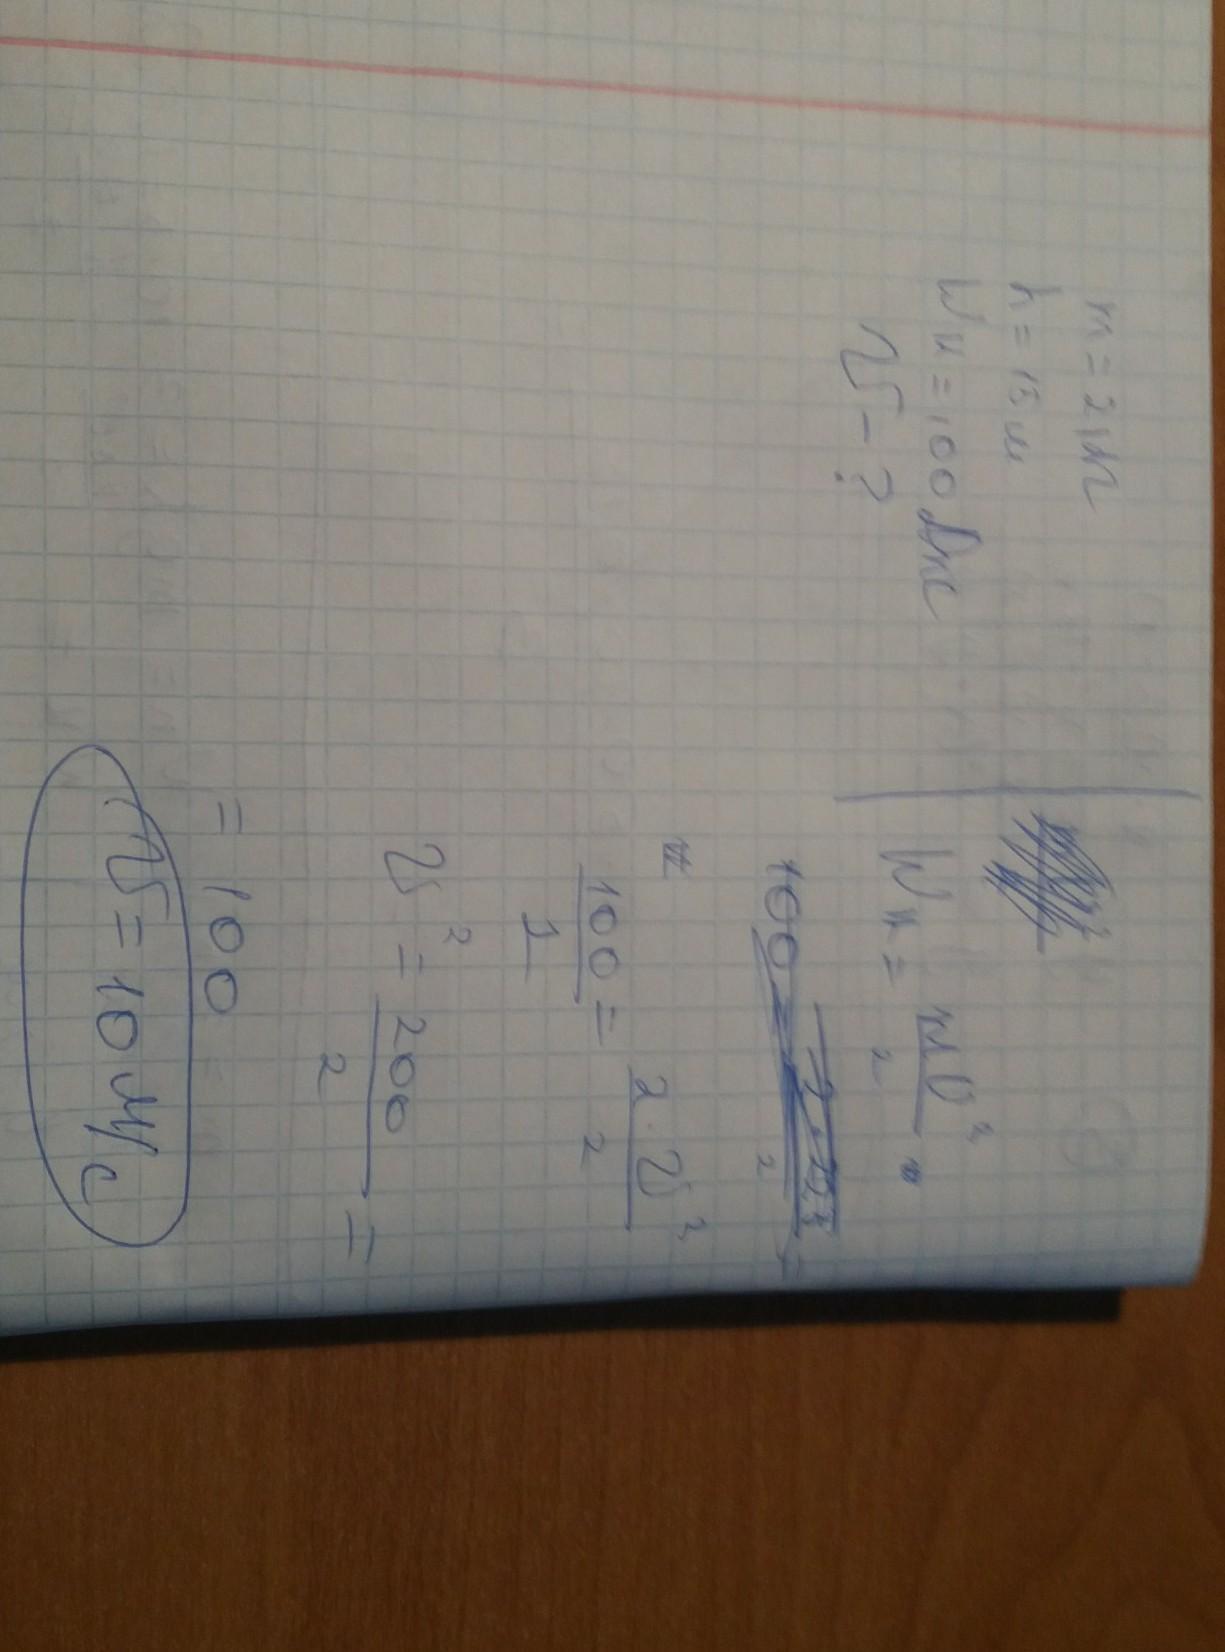 m = 2 кг
h = 15 м
Wк = 100 Дж
v - ?
Wк = mv²/2
100 = 2·v²/2
100/1 = 2·v²/2
v² = 200/2 =
= 100
v = 10 м/с